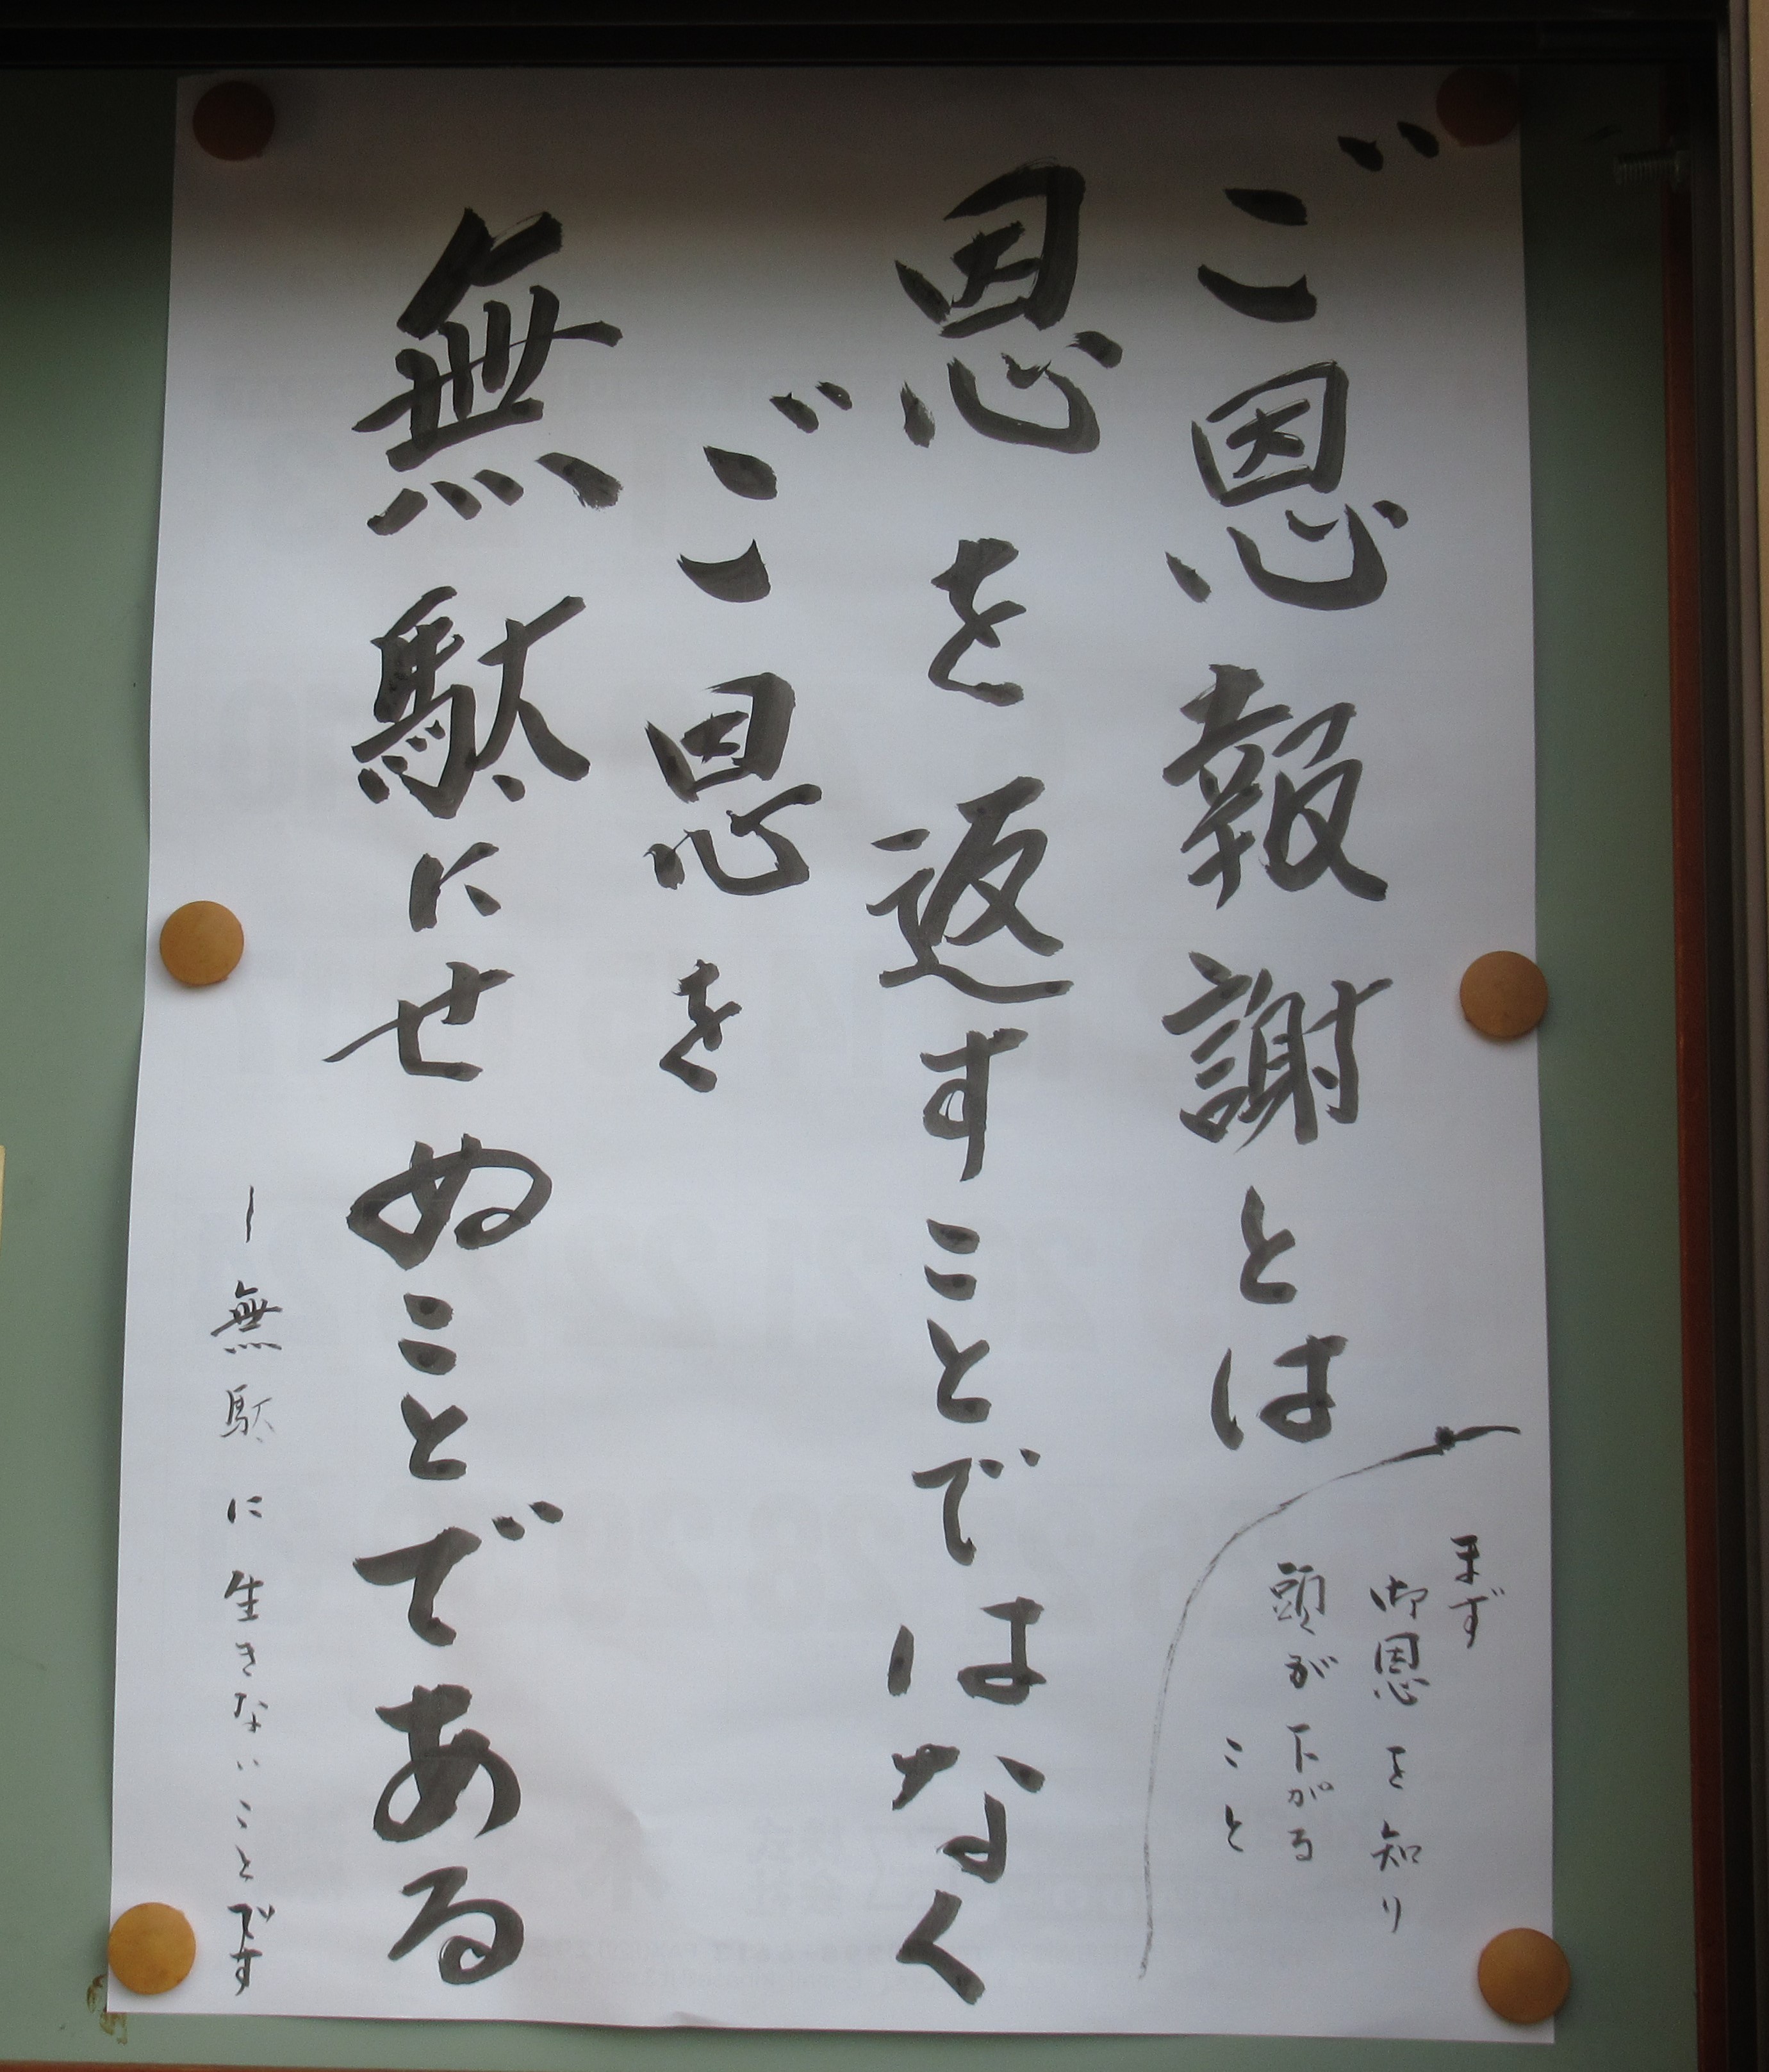 ご恩報謝とは
まず
御恩を知り
頭が下がる
こと
恩を返すことではなく
ご恩を
無駄にせぬことである
ー無駄に生きないことです